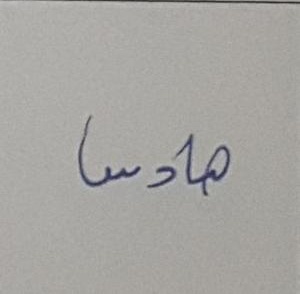 هادسا